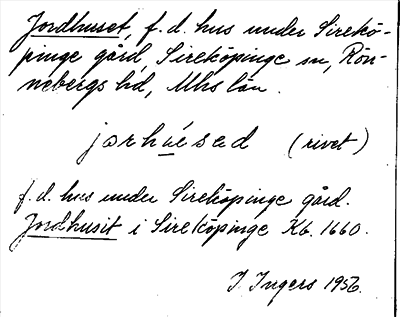 Jordhuset, f. d. hus under Sirekö-
pinge gård, Sireköpinge sn, Rön-
nebergs hd, Mhs län.
jorhúsed (rivet)
f. d. hus under Sireköpinge gård.
Jordhusit i Sireköpinge Kb. 1660.
I. Ingers 1956.